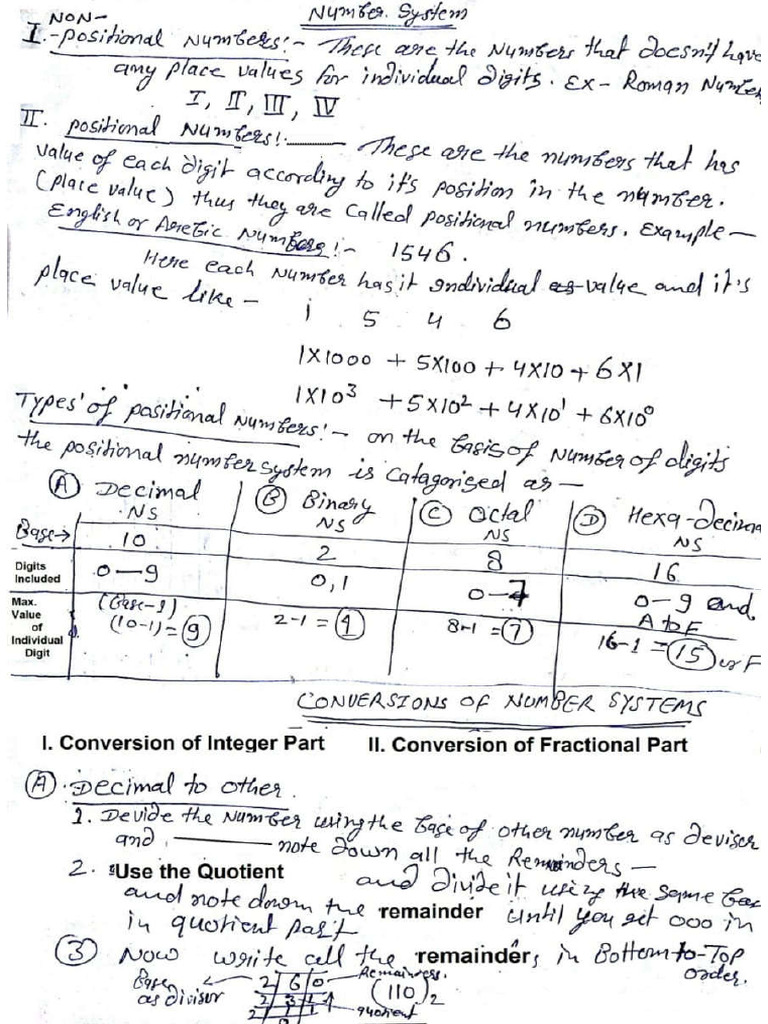 Number System
NON-
I.-positional Numbers:- These are the Numbers that doesn't have
any place values for individual digits. Ex- Roman Number
I, II, III, IV
II. positional Numbers:- These are the numbers that has
value of each digit according to it's position in the number.
(place value) thus they are called positional numbers. Example-
English or Arebic Numbers:- 1546.
Here each number has it individual value and it's
place value like -
1 5 4 6
1X1000 + 5X100 + 4X10 + 6X1
1X10³ + 5X10² + 4X10¹ + 6X10⁰
Types of positional Numbers:- on the basis of Number of digits
the positional number system is catagorised as -
(A) Decimal NS (B) Binary NS (C) Octal NS (D) Hexa-Decima NS
Base→ 10 2 8 16
Digits Included 0-9 0,1 0-7 0-9 and A to F
Max. Value of Individual Digit (Base-1) (10-1)=9 2-1=1 8-1=7 16-1=15 or F
CONVERSIONS OF NUMBER SYSTEMS
I. Conversion of Integer Part II. Conversion of Fractional Part
(A). Decimal to other.
1. Devide the Number using the base of other number as deviser
and note down all the Remainders-
2. Use the Quotient and divide it using the same bas
and note down the remainder until you get 000 in
in quotient part
(3) Now write all the remainders in Bottom-to-Top
order.
Base as divisor 2 6 0 Remainders. (110)₂
2 3 1
2 1 1 quotient
0